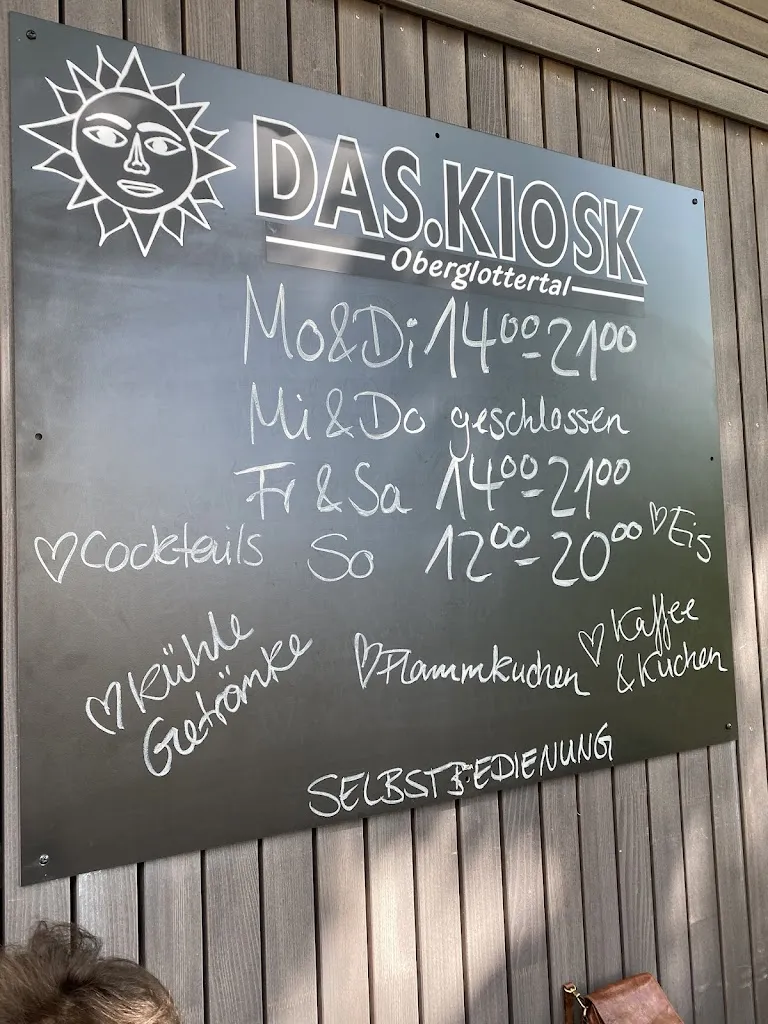 DAS.KIOSK
Oberglottertal
Mo&Di 14⁰⁰-21⁰⁰
Mi & Do geschlossen
Fr & Sa 14⁰⁰-21⁰⁰
♡Cocktails So 12⁰⁰-20⁰⁰ ♡Eis
♡Kühle
Getränke
♡Flammkuchen
♡Kaffee
& Kuchen
SELBSTBEDIENUNG